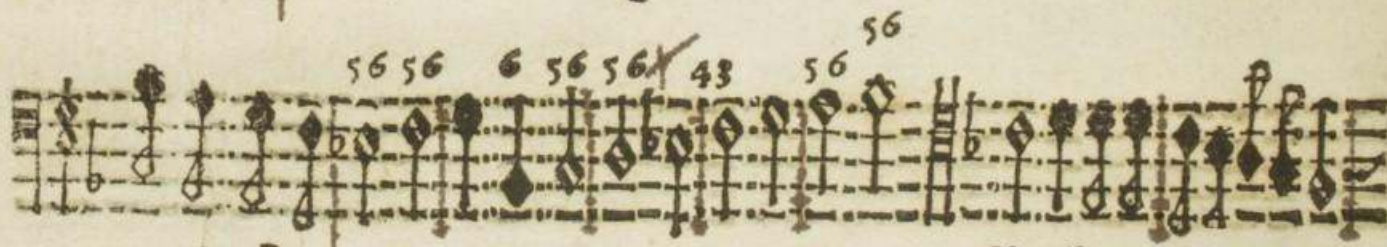 56 56 6 56 56 43 56 56